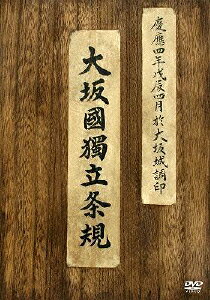 慶應四年戊辰四月於大坂城調印
大坂國獨立条規
DVD
VIDEO